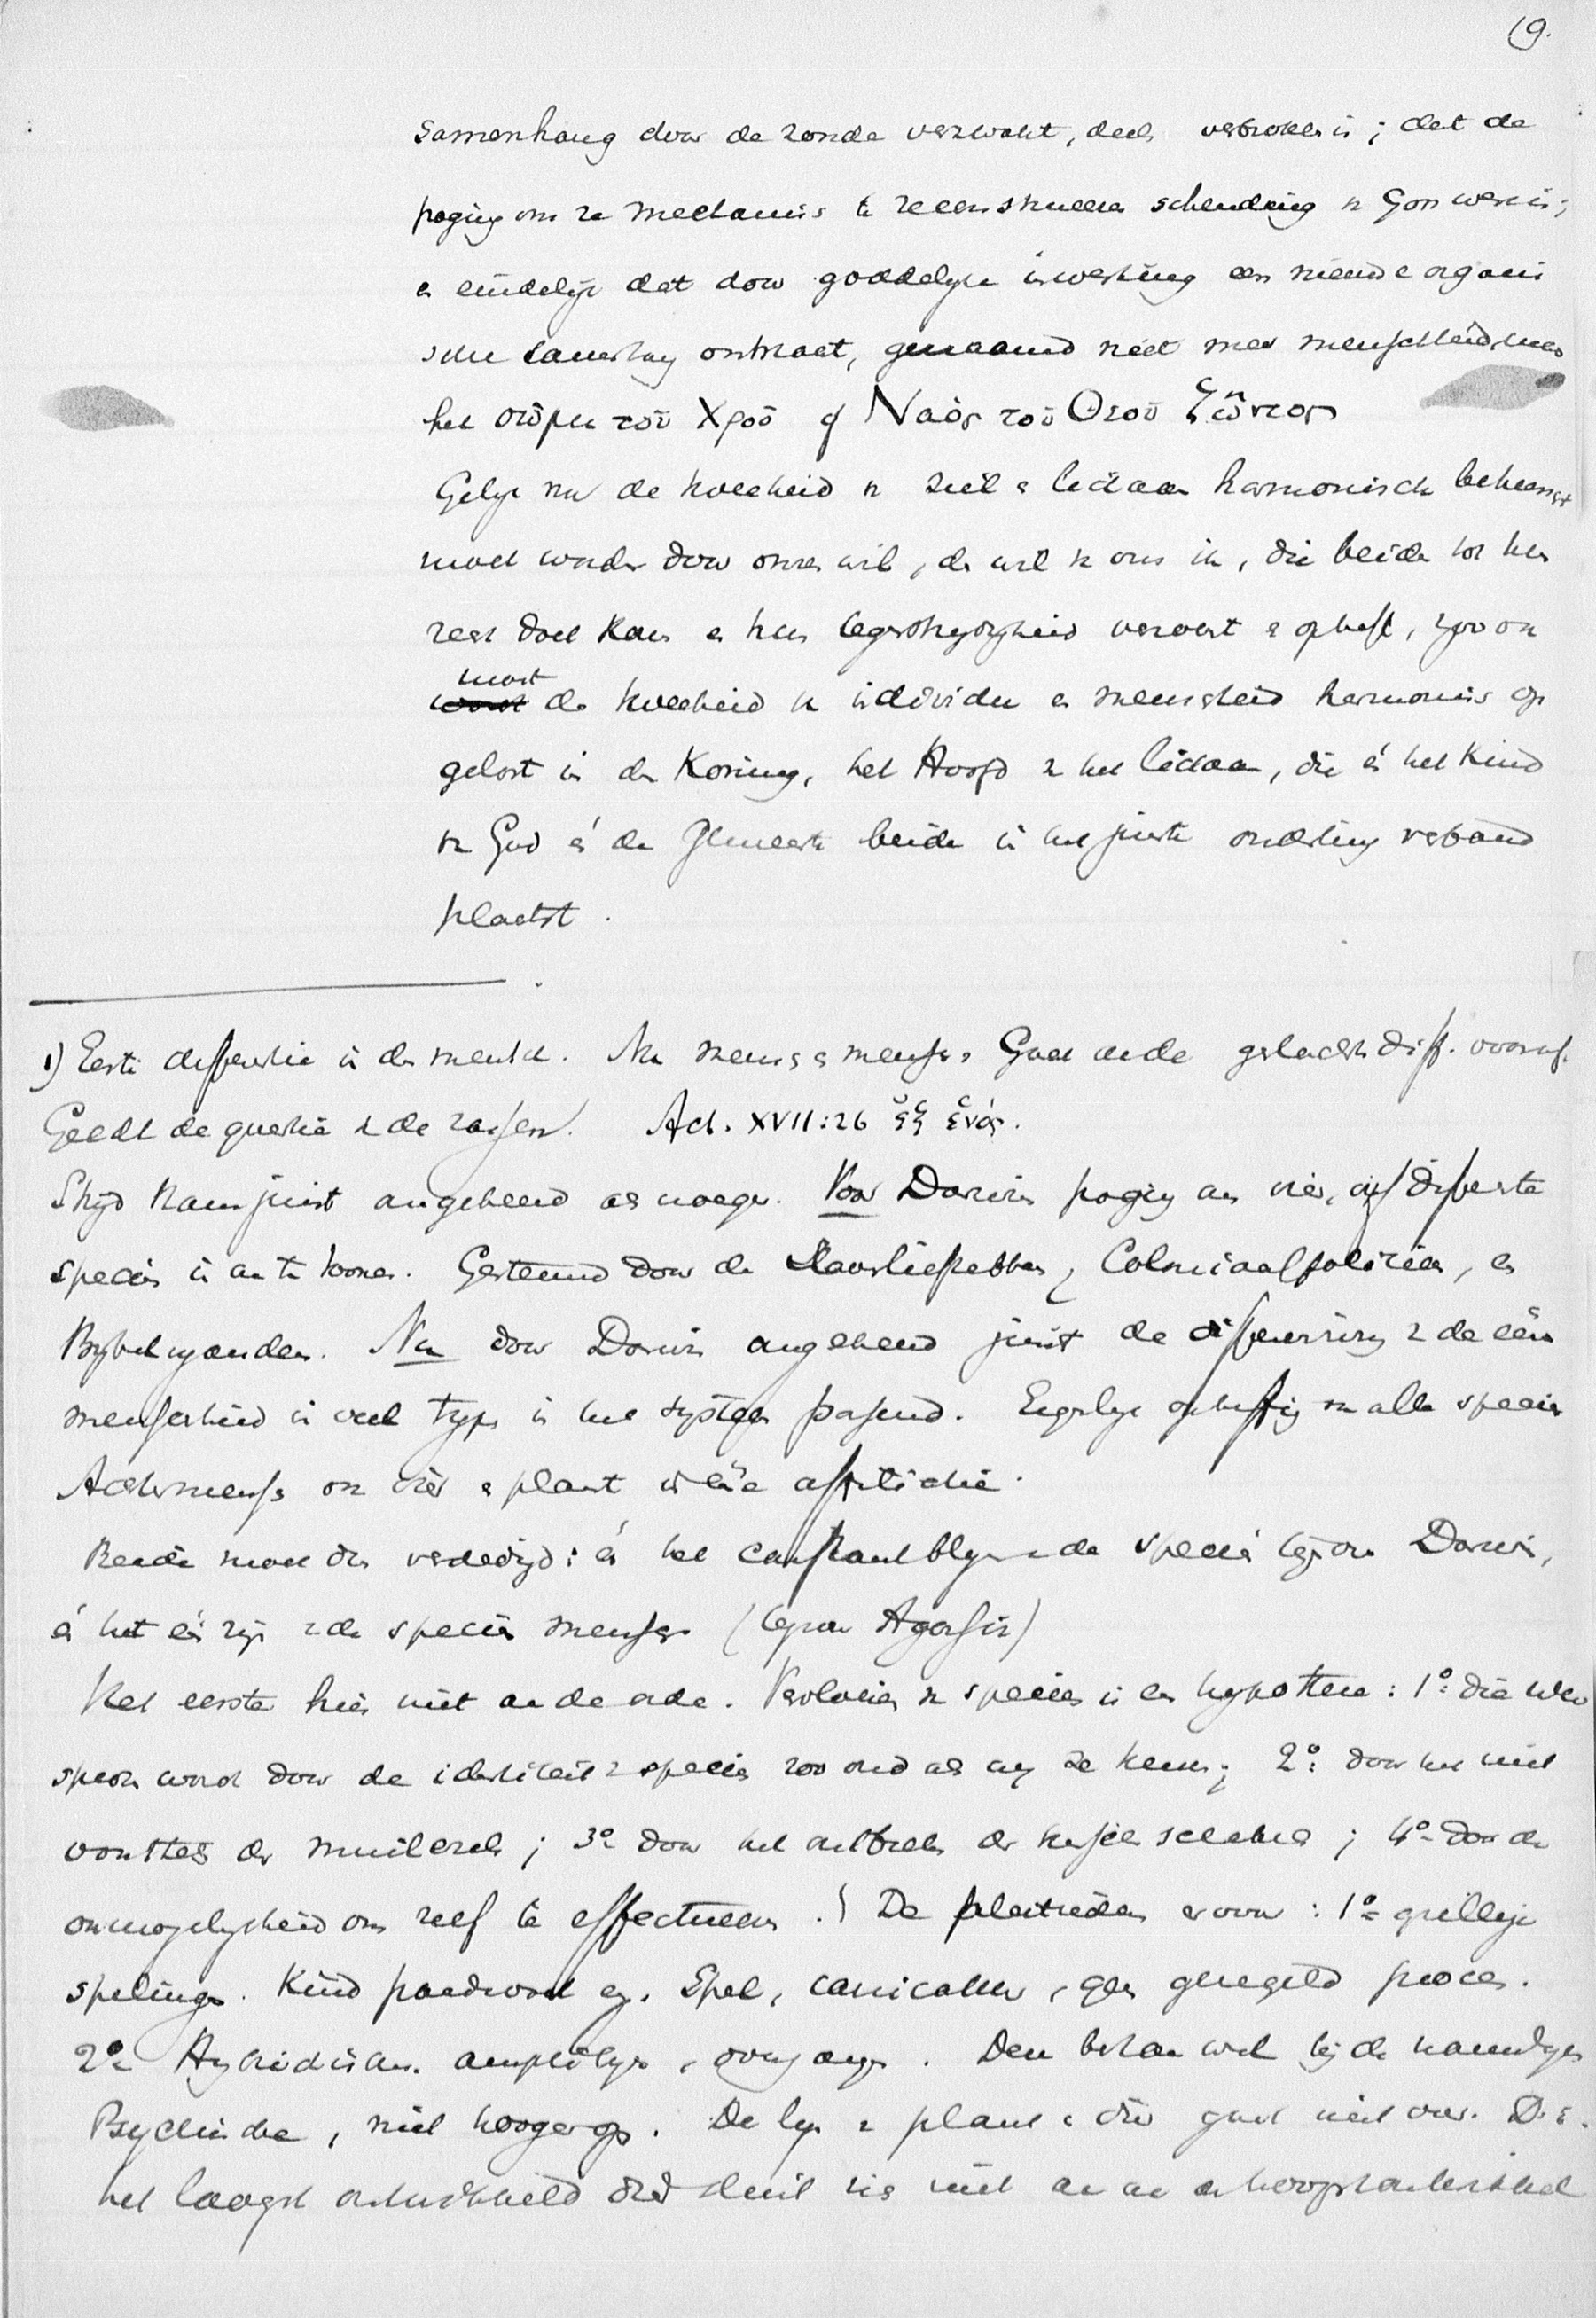 19.
samenhang door de zonde verzwakt, deels verbroken is; dat de
poging om ze mechanis te reconstrueeren schending v Gods werk is;
en eindelijk dat door goddelijke inwerking een nieuwe organi
sche samenhang ontstaat, genaamd niet meer menschheid, maar
het σῶμα τοῦ Χροῦ of Ναὸς τοῦ Θεοῦ ζῶντος
Gelijk nu de tweeheid v ziel e lichaam harmonisch beheerscht
moet worden door onzen wil, de wil v ons ik, die beide tot hun
doel en hun tegenstrijdigheid verzoent e opheft, zoo ook
moet de tweeheid v individu en menschheid harmonis op
gelost in den Koning, het Hoofd v het lichaam, die én het Kind
v God én de Gemeente beide in het juiste onderling verband
plaatst.
1) Eerste differentie in de mensch. Man mensch e mensch. Gaat aan de geslachts diff. vooraf.
Geeft de questie v de rassen. Act. XVII:26 ἐξ ἑνός.
Strijd thans juist omgekeerd als vroeger. Voor Darwin poging om vier, vijf differente
species in aan te toonen. Gesteund door de Slavenliefhebbers, Coloniaalpolitici, en
Bijbelvijanden. Nu door Darwin omgekeerd juist de differentiering v de ééne
menschheid in veel typen in het systeem passend. Eigenlijk opheffing van alle species
Achter mensch ook dier e plant in ééne affiliatie.
Beide moet dus verdedigd: én het constant blijven der species tegenover Darwin,
én het één zijn v de species mensch (tegenover Agassiz)
Het eerste hier niet aan de orde. Evolutie v species is een hypothese: 1º die weer
sproken wordt door de identiteit v species zoo oud als wij ze kennen; 2º door het niet
voortteelen der muilezels; 3º door het ontbreken der tusschen schakels; 4º door de
onmogelijkheid om zelf te effectueeren. De pleitreden ervoor: 1º grillige
spelingen. Kind paardevoet enz. Spel, caricatuur, geen geregeld proces.
2º amphibiën, overgangen. Deze bestaan wel bij de
Psyche, niet hooger op. De lijn v plant e dier gaat niet over. D.i.
het laagst ontwikkeld dier sluit zich niet aan aan de hoogst ontwikkel